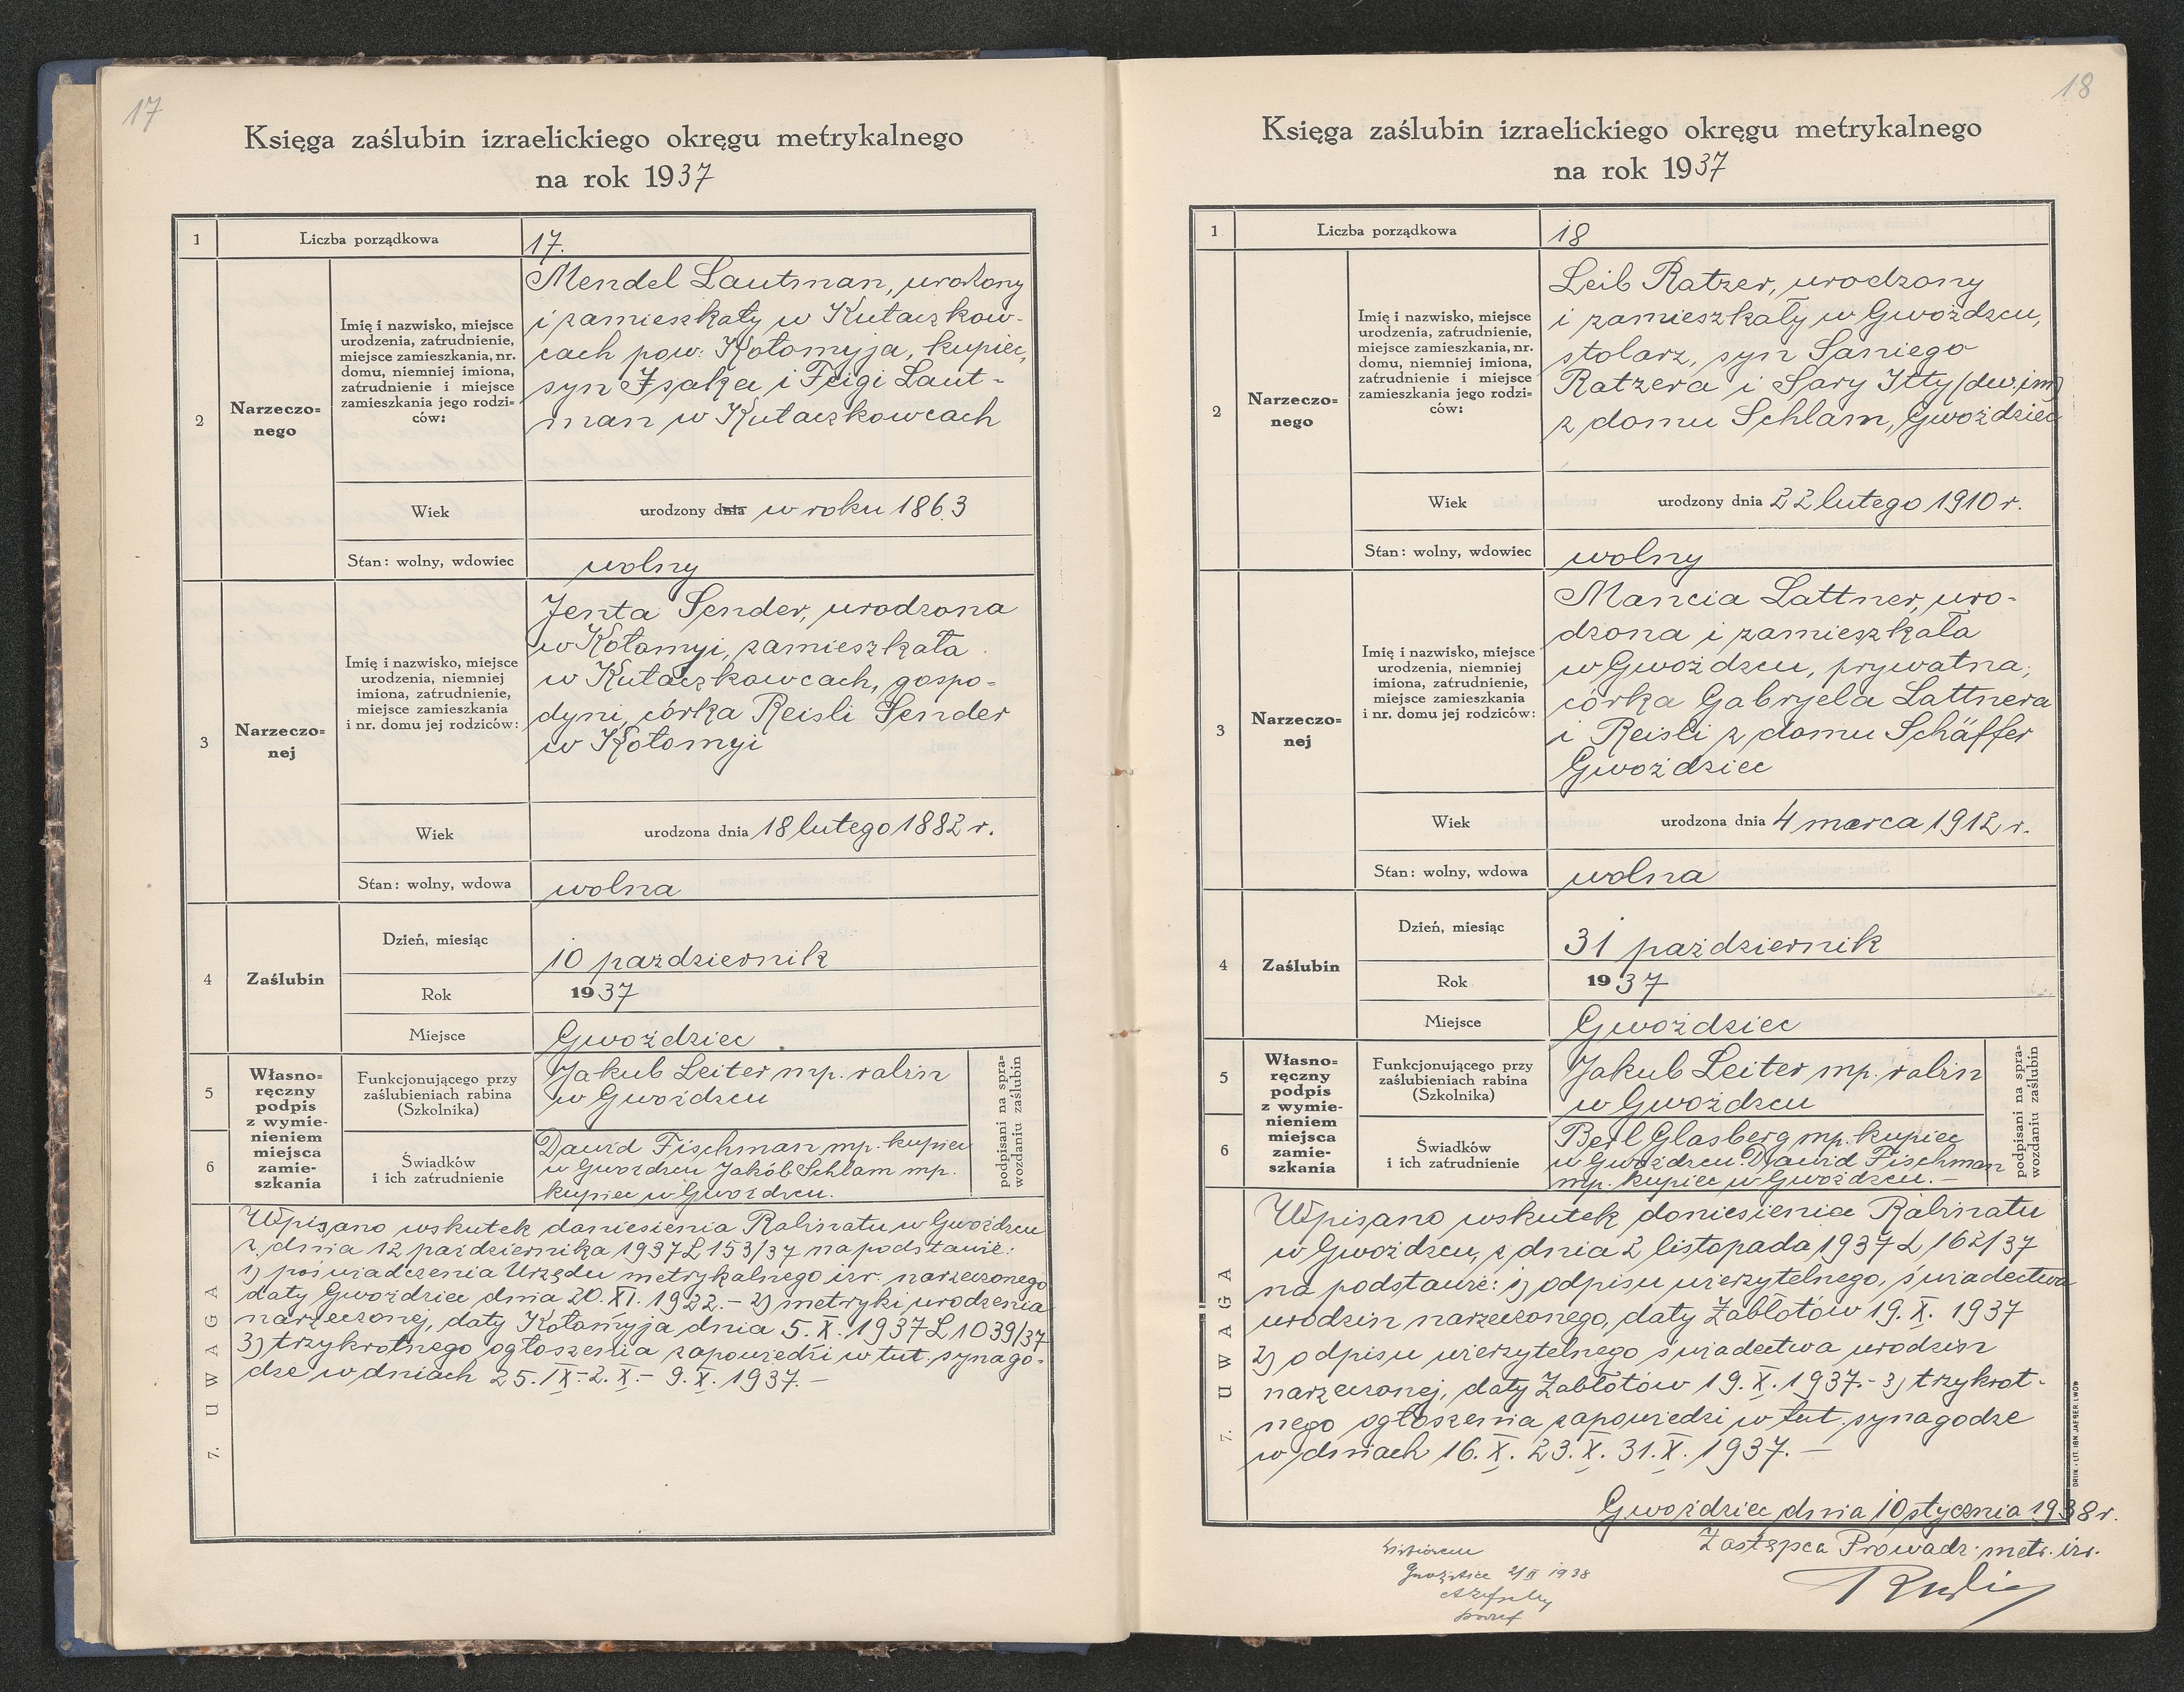 17
Księga zaślubin izraelickiego okręgu metrykalnego
na rok 1937
1
Liczba porządkowa
17.
2
Narzeczo=
nego
Imię i nazwisko, miejsce
urodzenia, zatrudnienie,
miejsce zamieszkania, nr.
domu, niemniej imiona,
zatrudnienie i miejsce
zamieszkania jego rodzi=
ców:
Mendel Lautman, urodzony
i zamieszkały w Kułaczkow-
cach pow: Kołomyja, kupiec,
syn Izaka i Feigi Laut-
man w Kułaczkowcach
Wiek
urodzony dnia w roku 1863
Stan: wolny, wdowiec
wolny
3
Narzeczo=
nej
Imię i nazwisko, miejsce
urodzenia, niemniej
imiona, zatrudnienie,
miejsce zamieszkania
i nr. domu jej rodziców:
Jenta Sender, urodzona
w Kołomyi, zamieszkała
w Kułaczkowcach, gospo-
dyni, córka Reisli Sender
w Kołomyi
Wiek
urodzona dnia 18 lutego 1882 r.
Stan: wolny, wdowa
wolna
4
Zaślubin
Dzień, miesiąc
10 październik
Rok
1937
Miejsce
Gwoździec
5
6
Własno=
ręczny
podpis
z wymie=
nieniem
miejsca
zamie=
szkania
Funkcjonującego przy
zaślubieniach rabina
(Szkolnika)
Jakub Leiter mp. rabin
w Gwoźdzcu
Świadków
i ich zatrudnienie
Dawid Fischman mp. kupiec
w Gwoźdzcu Jakób Schlam mp.
kupiec w Gwoźdzcu.
podpisani na spra=
wozdaniu zaślubin
7. UWAGA
Wpisano wskutek doniesienia Rabinatu w Gwoźdzcu
z dnia 12 października 1937 L 153/37 na podstawie:
1) poświadczenia Urzędu metrykalnego izr. narzeczonego
daty Gwoździec dnia 20. XI. 1922.- 2) metryki urodzenia
narzeczonej, daty Kołomyja dnia 5. X. 1937 L 1039/37
3) trzykrotnego ogłoszenia zapowiedzi w tut. synago-
dze w dniach 25. IX - 2. X. - 9. X. 1937. -
18
Księga zaślubin izraelickiego okręgu metrykalnego
na rok 1937
1
Liczba porządkowa
18
2
Narzeczo=
nego
Imię i nazwisko, miejsce
urodzenia, zatrudnienie,
miejsce zamieszkania, nr.
domu, niemniej imiona,
zatrudnienie i miejsce
zamieszkania jego rodzi=
ców:
Leib Ratzer, urodzony
i zamieszkały w Gwoźdzcu,
stolarz, syn Saniego
Ratzera i Sary Itty (dw. im)
z domu Schlam, Gwoździec
Wiek
urodzony dnia 22 lutego 1910 r.
Stan: wolny, wdowiec
wolny
3
Narzeczo=
nej
Imię i nazwisko, miejsce
urodzenia, niemniej
imiona, zatrudnienie,
miejsce zamieszkania
i nr. domu jej rodziców:
Mancia Lattner, uro-
dzona i zamieszkała
w Gwoźdzcu, prywatna,
córka Gabryela Lattnera
i Reisli z domu Schäffer
Gwoździec
Wiek
urodzona dnia 4 marca 1912 r.
Stan: wolny, wdowa
wolna
4
Zaślubin
Dzień, miesiąc
31 październik
Rok
1937
Miejsce
Gwoździec
5
6
Własno=
ręczny
podpis
z wymie=
nieniem
miejsca
zamie=
szkania
Funkcjonującego przy
zaślubieniach rabina
(Szkolnika)
Jakub Leiter mp. rabin
w Gwoźdzcu
Świadków
i ich zatrudnienie
Berl Glasberg mp. kupiec
w Gwoźdzcu. Dawid Fischman
mp. kupiec w Gwoźdzcu. -
podpisani na spra=
wozdaniu zaślubin
7. UWAGA
Wpisano wskutek doniesienia Rabinatu
w Gwoźdzcu, z dnia 2 listopada 1937 L 162/37
na podstawie: 1) odpisu wierzytelnego, świadectwa
urodzin narzeczonego, daty Zabłotów 19. X. 1937
2) odpisu wierzytelnego świadectwa urodzin
narzeczonej, daty Zabłotów 19. X. 1937.- 3) trzykrot-
nego ogłoszenia zapowiedzi w tut. synagodze
w dniach 16. X. 23. X. 31. X. 1937. -
Gwoździec dnia 10 stycznia 1938 r.
Zastępca Prowadz. metr. izr.
2/II 1938
DRUK. i LIT. IGN. JAEGER, LWÓW